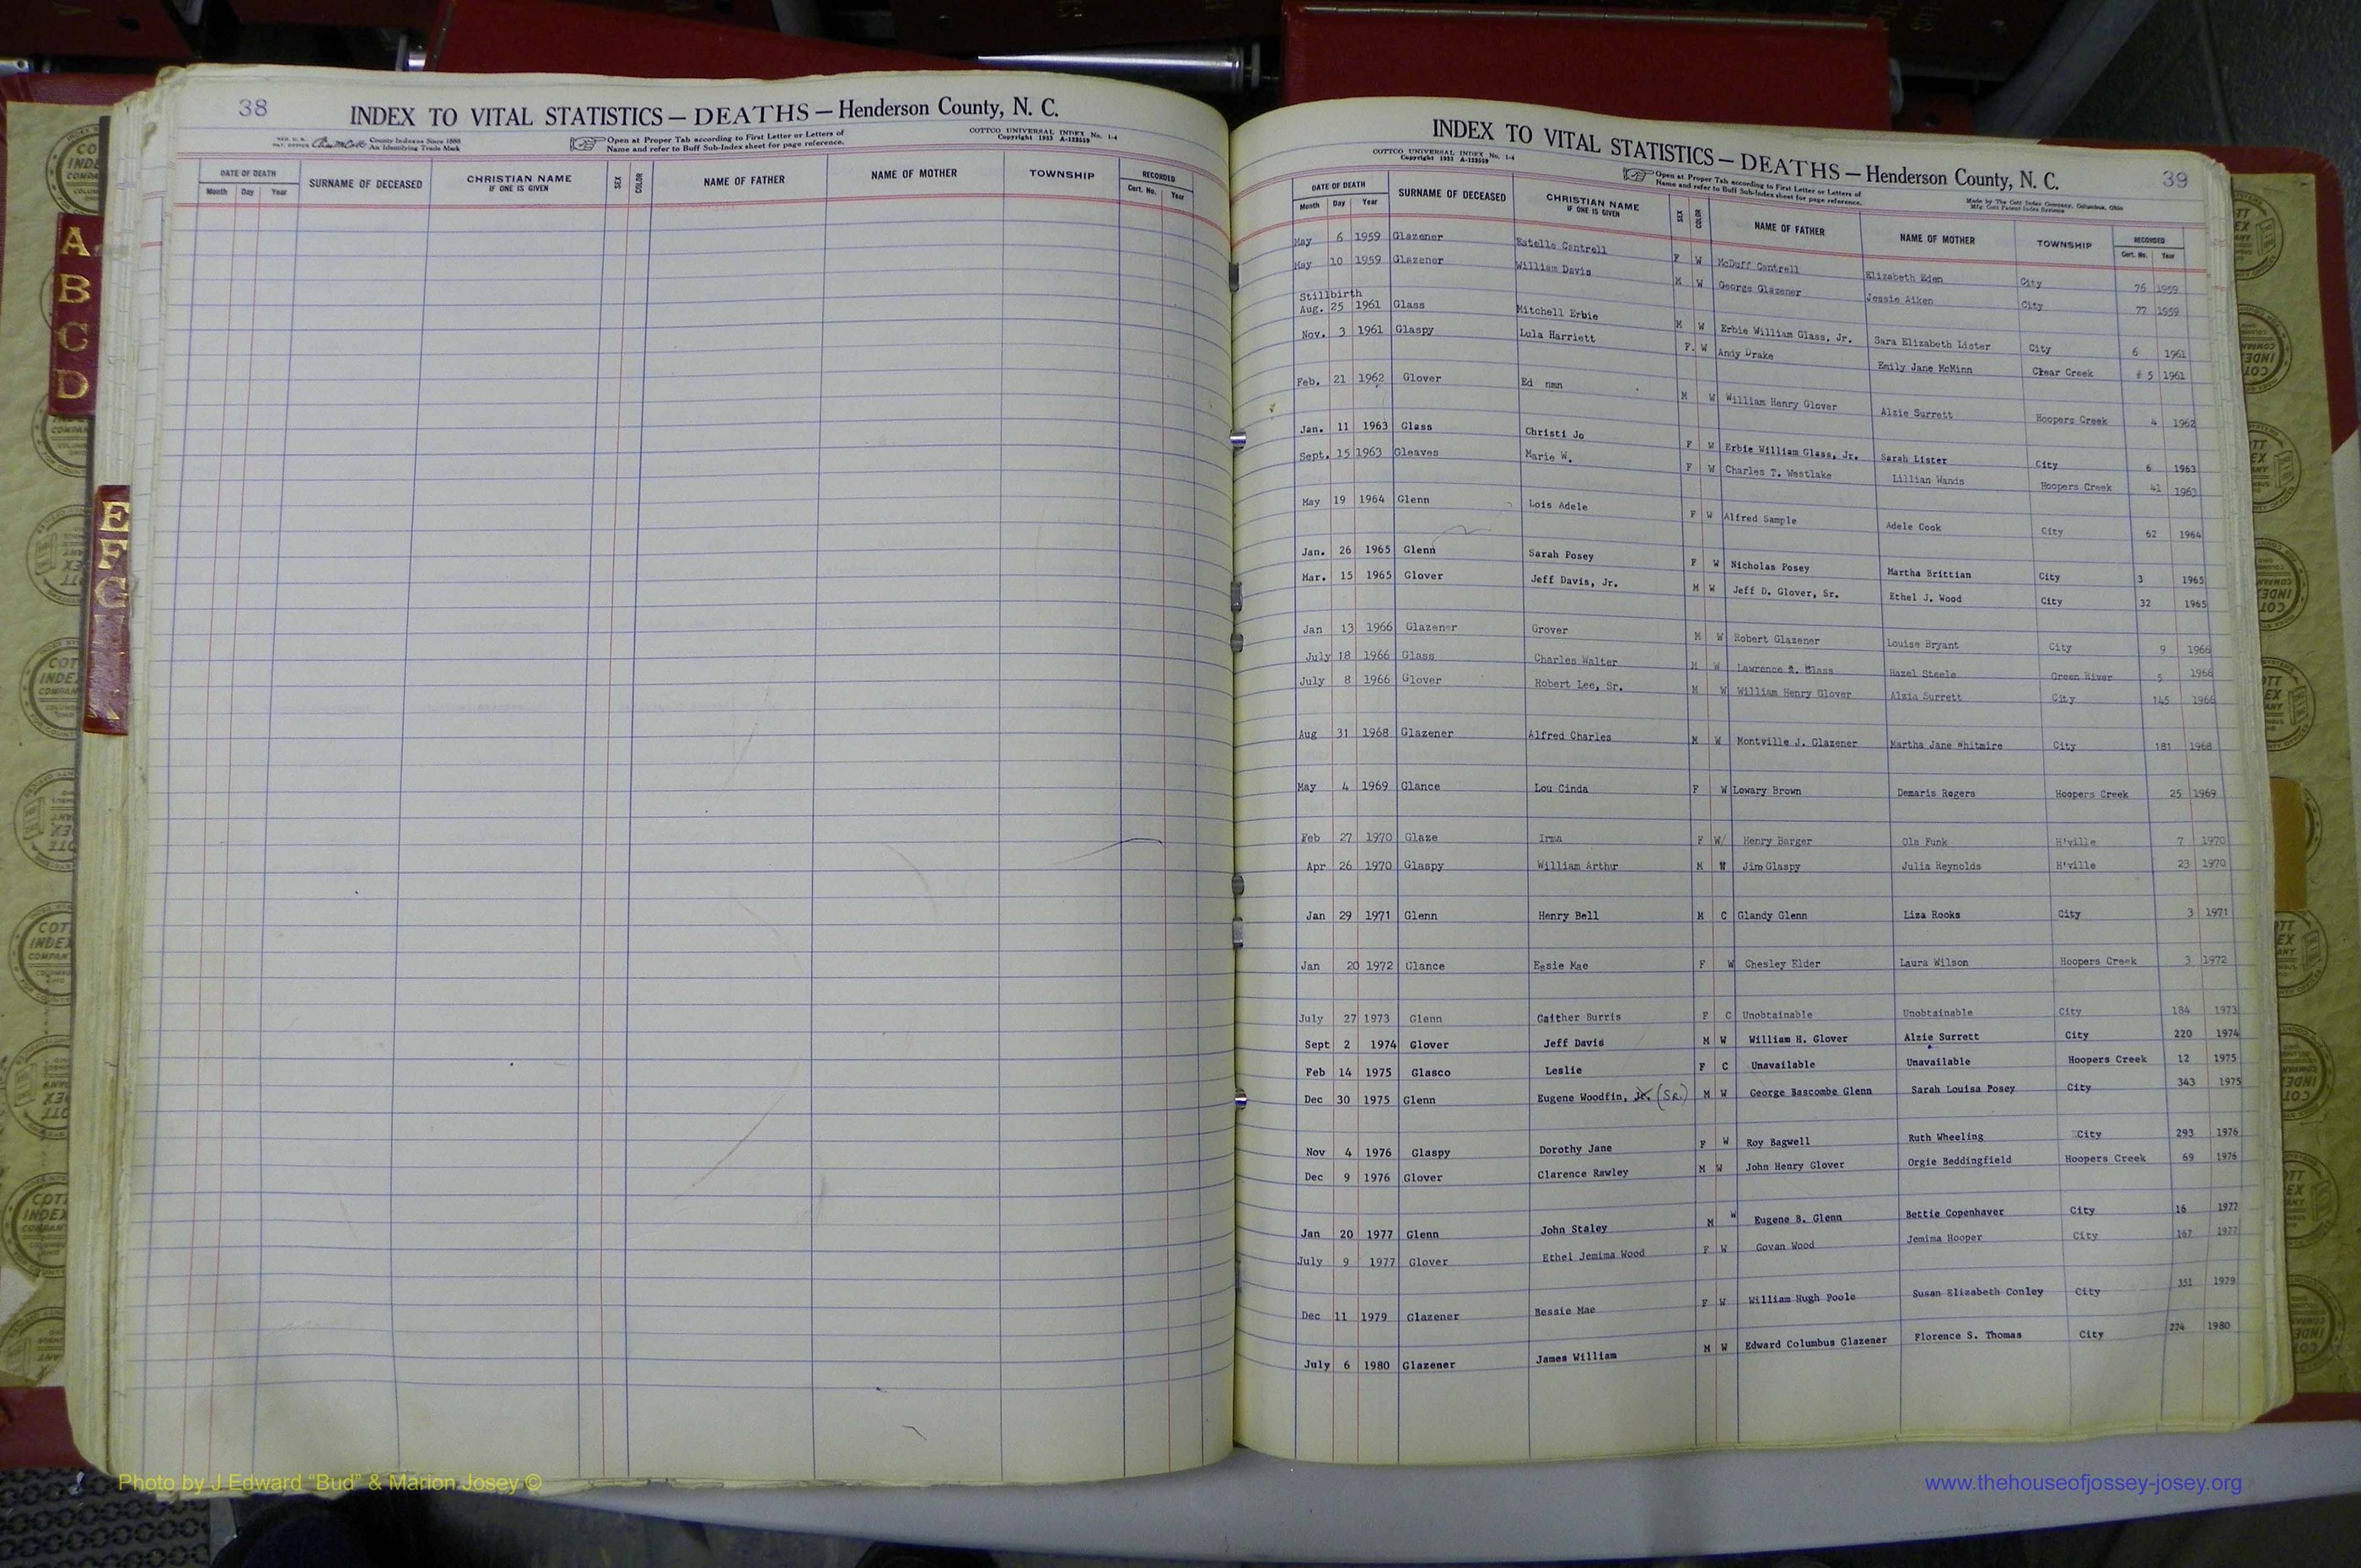 38
INDEX TO VITAL STATISTICS — DEATHS — Henderson County, N. C.
County Indexes Since 1888
An Identifying Trade Mark
Open at Proper Tab according to First Letter or Letters of
Name and refer to Buff Sub-Index sheet for page reference.
COTTCO UNIVERSAL INDEX No. 1-4
Copyright 1933 A-123559
DATE OF DEATH SURNAME OF DECEASED CHRISTIAN NAME IF ONE IS GIVEN SEX COLOR NAME OF FATHER NAME OF MOTHER TOWNSHIP RECORDED
Month Day Year Cert. No. Year
A
B
C
D
E
F
G
INDEX TO VITAL STATISTICS — DEATHS — Henderson County, N. C.
39
COTTCO UNIVERSAL INDEX No. 1-4
Copyright 1933 A-123559
Open at Proper Tab according to First Letter or Letters of
Name and refer to Buff Sub-Index sheet for page reference.
Made by The Cott Index Company, Columbus, Ohio
Mfg. Cott Patent Index Systems
DATE OF DEATH SURNAME OF DECEASED CHRISTIAN NAME IF ONE IS GIVEN SEX COLOR NAME OF FATHER NAME OF MOTHER TOWNSHIP RECORDED
Month Day Year Cert. No. Year
May 6 1959 Glazener Estelle Cantrell F W McDuff Cantrell Elizabeth Eden City 76 1959
May 10 1959 Glazener William Davis M W George Glazener Jessie Aiken City 77 1959
Stillbirth
Aug. 25 1961 Glass Mitchell Erbie M W Erbie William Glass, Jr. Sara Elizabeth Lister City 6 1961
Nov. 3 1961 Glaspy Lula Harriett F. W Andy Drake Emily Jane McMinn Clear Creek # 5 1961
Feb. 21 1962 Glover Ed M W William Henry Glover Alzie Surrett Hoopers Creek 4 1962
Jan. 11 1963 Glass Christi Jo F W Erbie William Glass, Jr. Sarah Lister City 6 1963
Sept. 15 1963 Gleaves Marie W. F W Charles T. Westlake Lillian Wands Hoopers Creek 41 1963
May 19 1964 Glenn Lois Adele F W Alfred Sample Adele Cook City 62 1964
Jan. 26 1965 Glenn Sarah Posey F W Nicholas Posey Martha Brittian City 3 1965
Mar. 15 1965 Glover Jeff Davis, Jr. M W Jeff D. Glover, Sr. Ethel J. Wood City 32 1965
Jan 13 1966 Glazener Grover M W Robert Glazener Louise Bryant City 9 1966
July 18 1966 Glass Charles Walter M W Lawrence R. Glass Hazel Steele Green River 5 1966
July 8 1966 Glover Robert Lee, Sr. M W William Henry Glover Alzia Surrett City 145 1966
Aug 31 1968 Glazener Alfred Charles M W Montville J. Glazener Martha Jane Whitmire City 181 1968
May 4 1969 Glance Lou Cinda F W Lowary Brown Demaris Rogers Hoopers Creek 25 1969
Feb 27 1970 Glaze Irma F W/ Henry Barger Ola Funk H'ville 7 1970
Apr 26 1970 Glaspy William Arthur M W Jim Glaspy Julia Reynolds H'ville 23 1970
Jan 29 1971 Glenn Henry Bell M C Glandy Glenn Liza Rooks City 3 1971
Jan 20 1972 Glance Essie Mae F W Chesley Elder Laura Wilson Hoopers Creek 3 1972
July 27 1973 Glenn Gaither Burris F C Unobtainable Unobtainable City 184 1973
Sept 2 1974 Glover Jeff Davis M W William H. Glover Alzie Surrett City 220 1974
Feb 14 1975 Glasco Leslie F C Unavailable Unavailable Hoopers Creek 12 1975
Dec 30 1975 Glenn Eugene Woodfin, Jr. (Sr.) M W George Bascombe Glenn Sarah Louisa Posey City 343 1975
Nov 4 1976 Glaspy Dorothy Jane F W Roy Bagwell Ruth Wheeling City 293 1976
Dec 9 1976 Glover Clarence Rawley M W John Henry Glover Orgie Beddingfield Hoopers Creek 69 1976
Jan 20 1977 Glenn John Staley M W Eugene B. Glenn Bettie Copenhaver City 16 1977
July 9 1977 Glover Ethel Jemima Wood F W Govan Wood Jemima Hooper City 167 1977
Dec 11 1979 Glazener Bessie Mae F W William Hugh Poole Susan Elizabeth Conley City 351 1979
July 6 1980 Glazener James William M W Edward Columbus Glazener Florence S. Thomas City 224 1980
Photo by J Edward “Bud” & Marion Josey ©
www.thehouseofjossey-josey.org